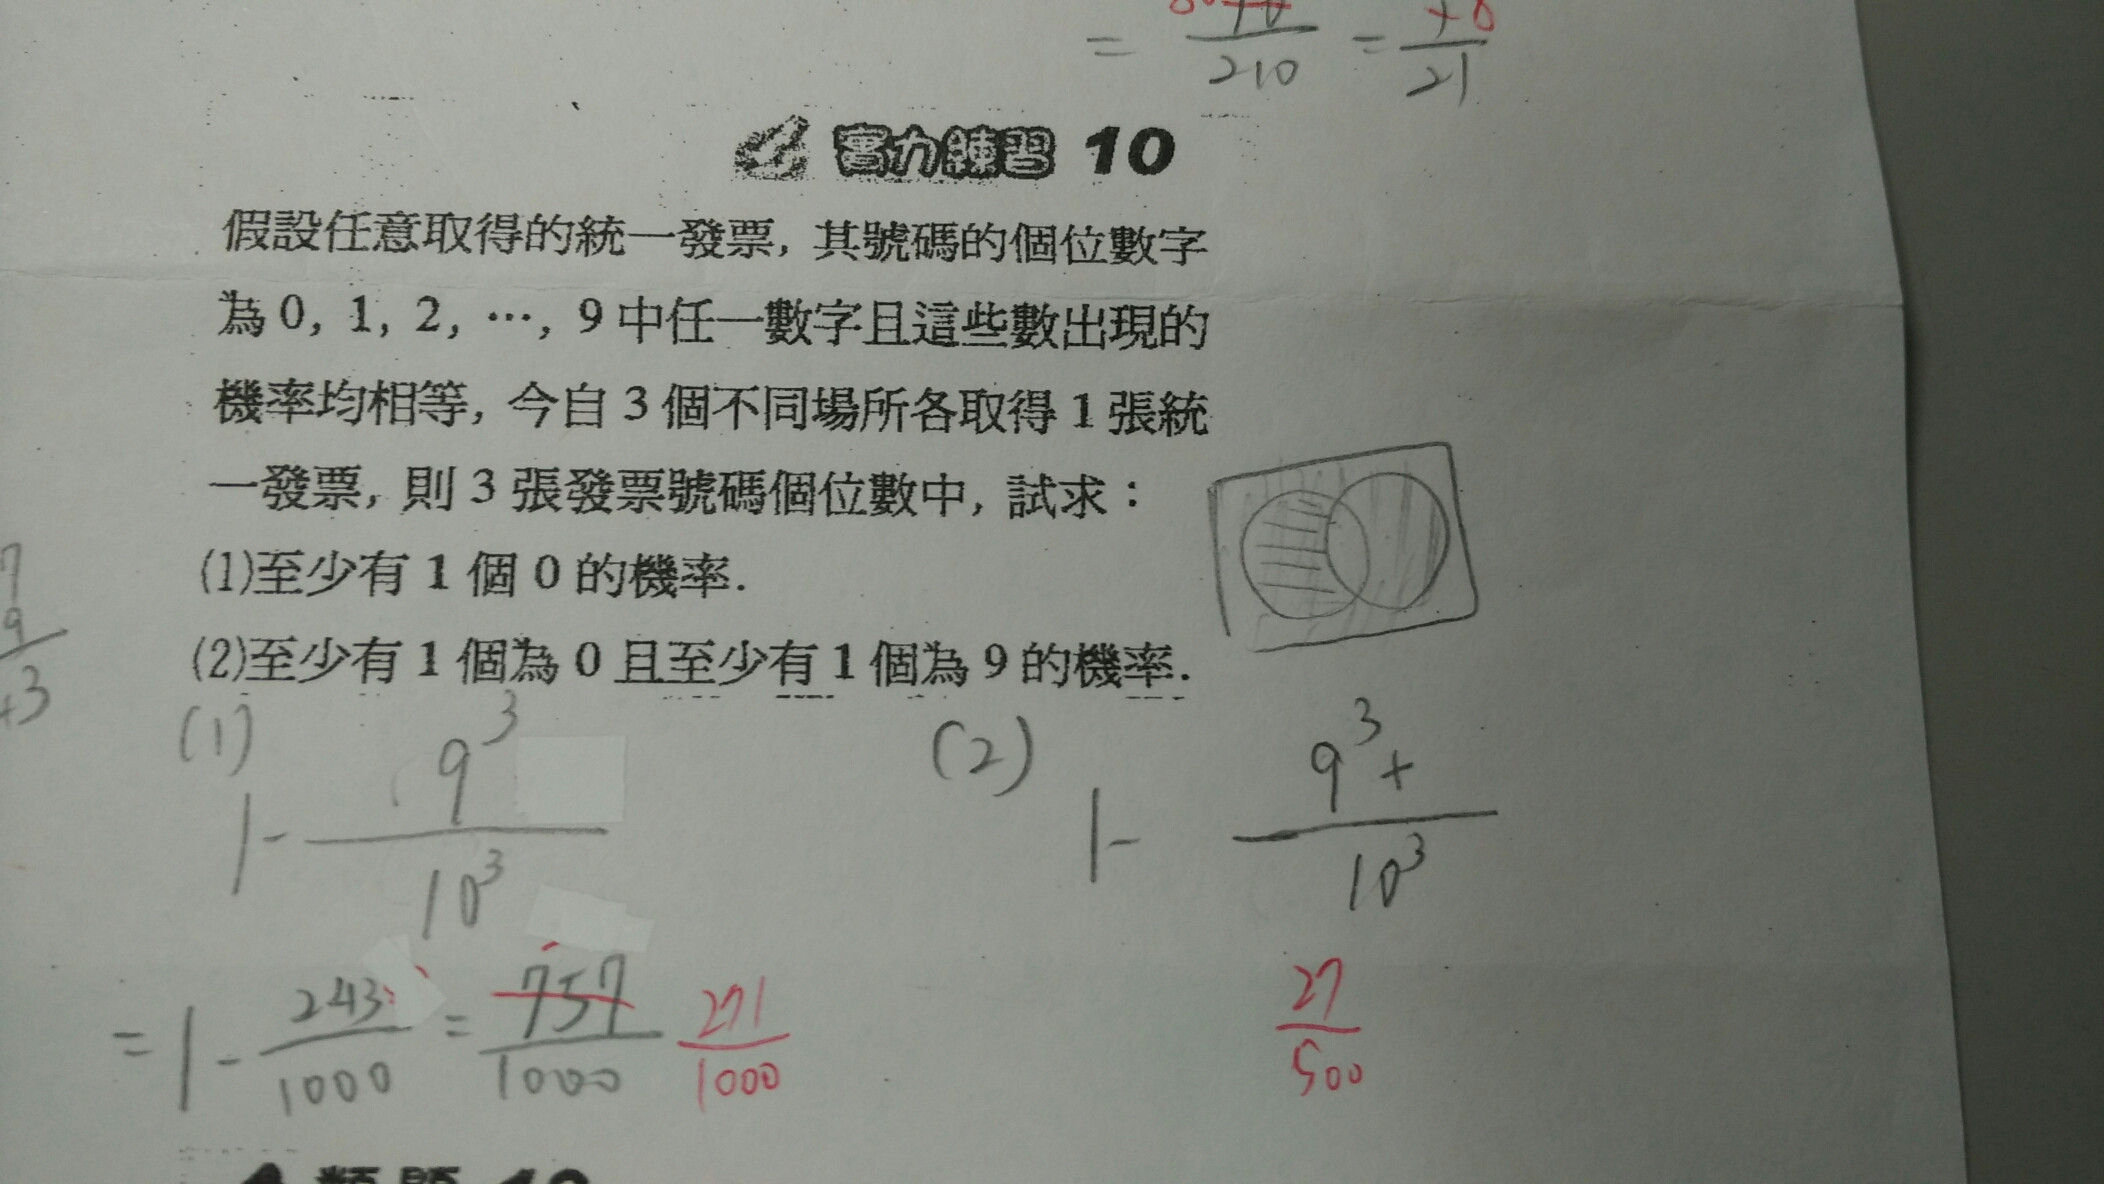 = 210 = 21
實力練習 10
假設任意取得的統一發票, 其號碼的個位數字
為 0, 1, 2, …, 9 中任一數字且這些數出現的
機率均相等, 今自 3 個不同場所各取得 1 張統
一發票, 則 3 張發票號碼個位數中, 試求：
(1)至少有 1 個 0 的機率.
(2)至少有 1 個為 0 且至少有 1 個為 9 的機率.
7
9
+3
(1) 1 - 9³/10³
(2) 1 - 9³+/10³
= 1 - 243/1000 = 757/1000 271/1000
27/500
類題 10